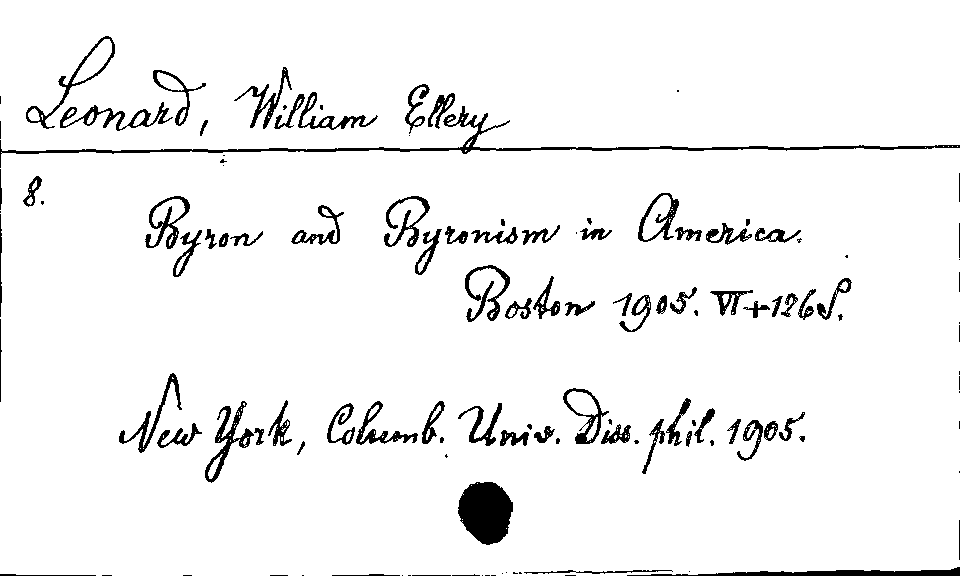 Leonard, William Ellery
8.
Byron and Byronism in America.
Boston 1905. VI+126 S.
New York, Columb. Univ. Diss. phil. 1905.